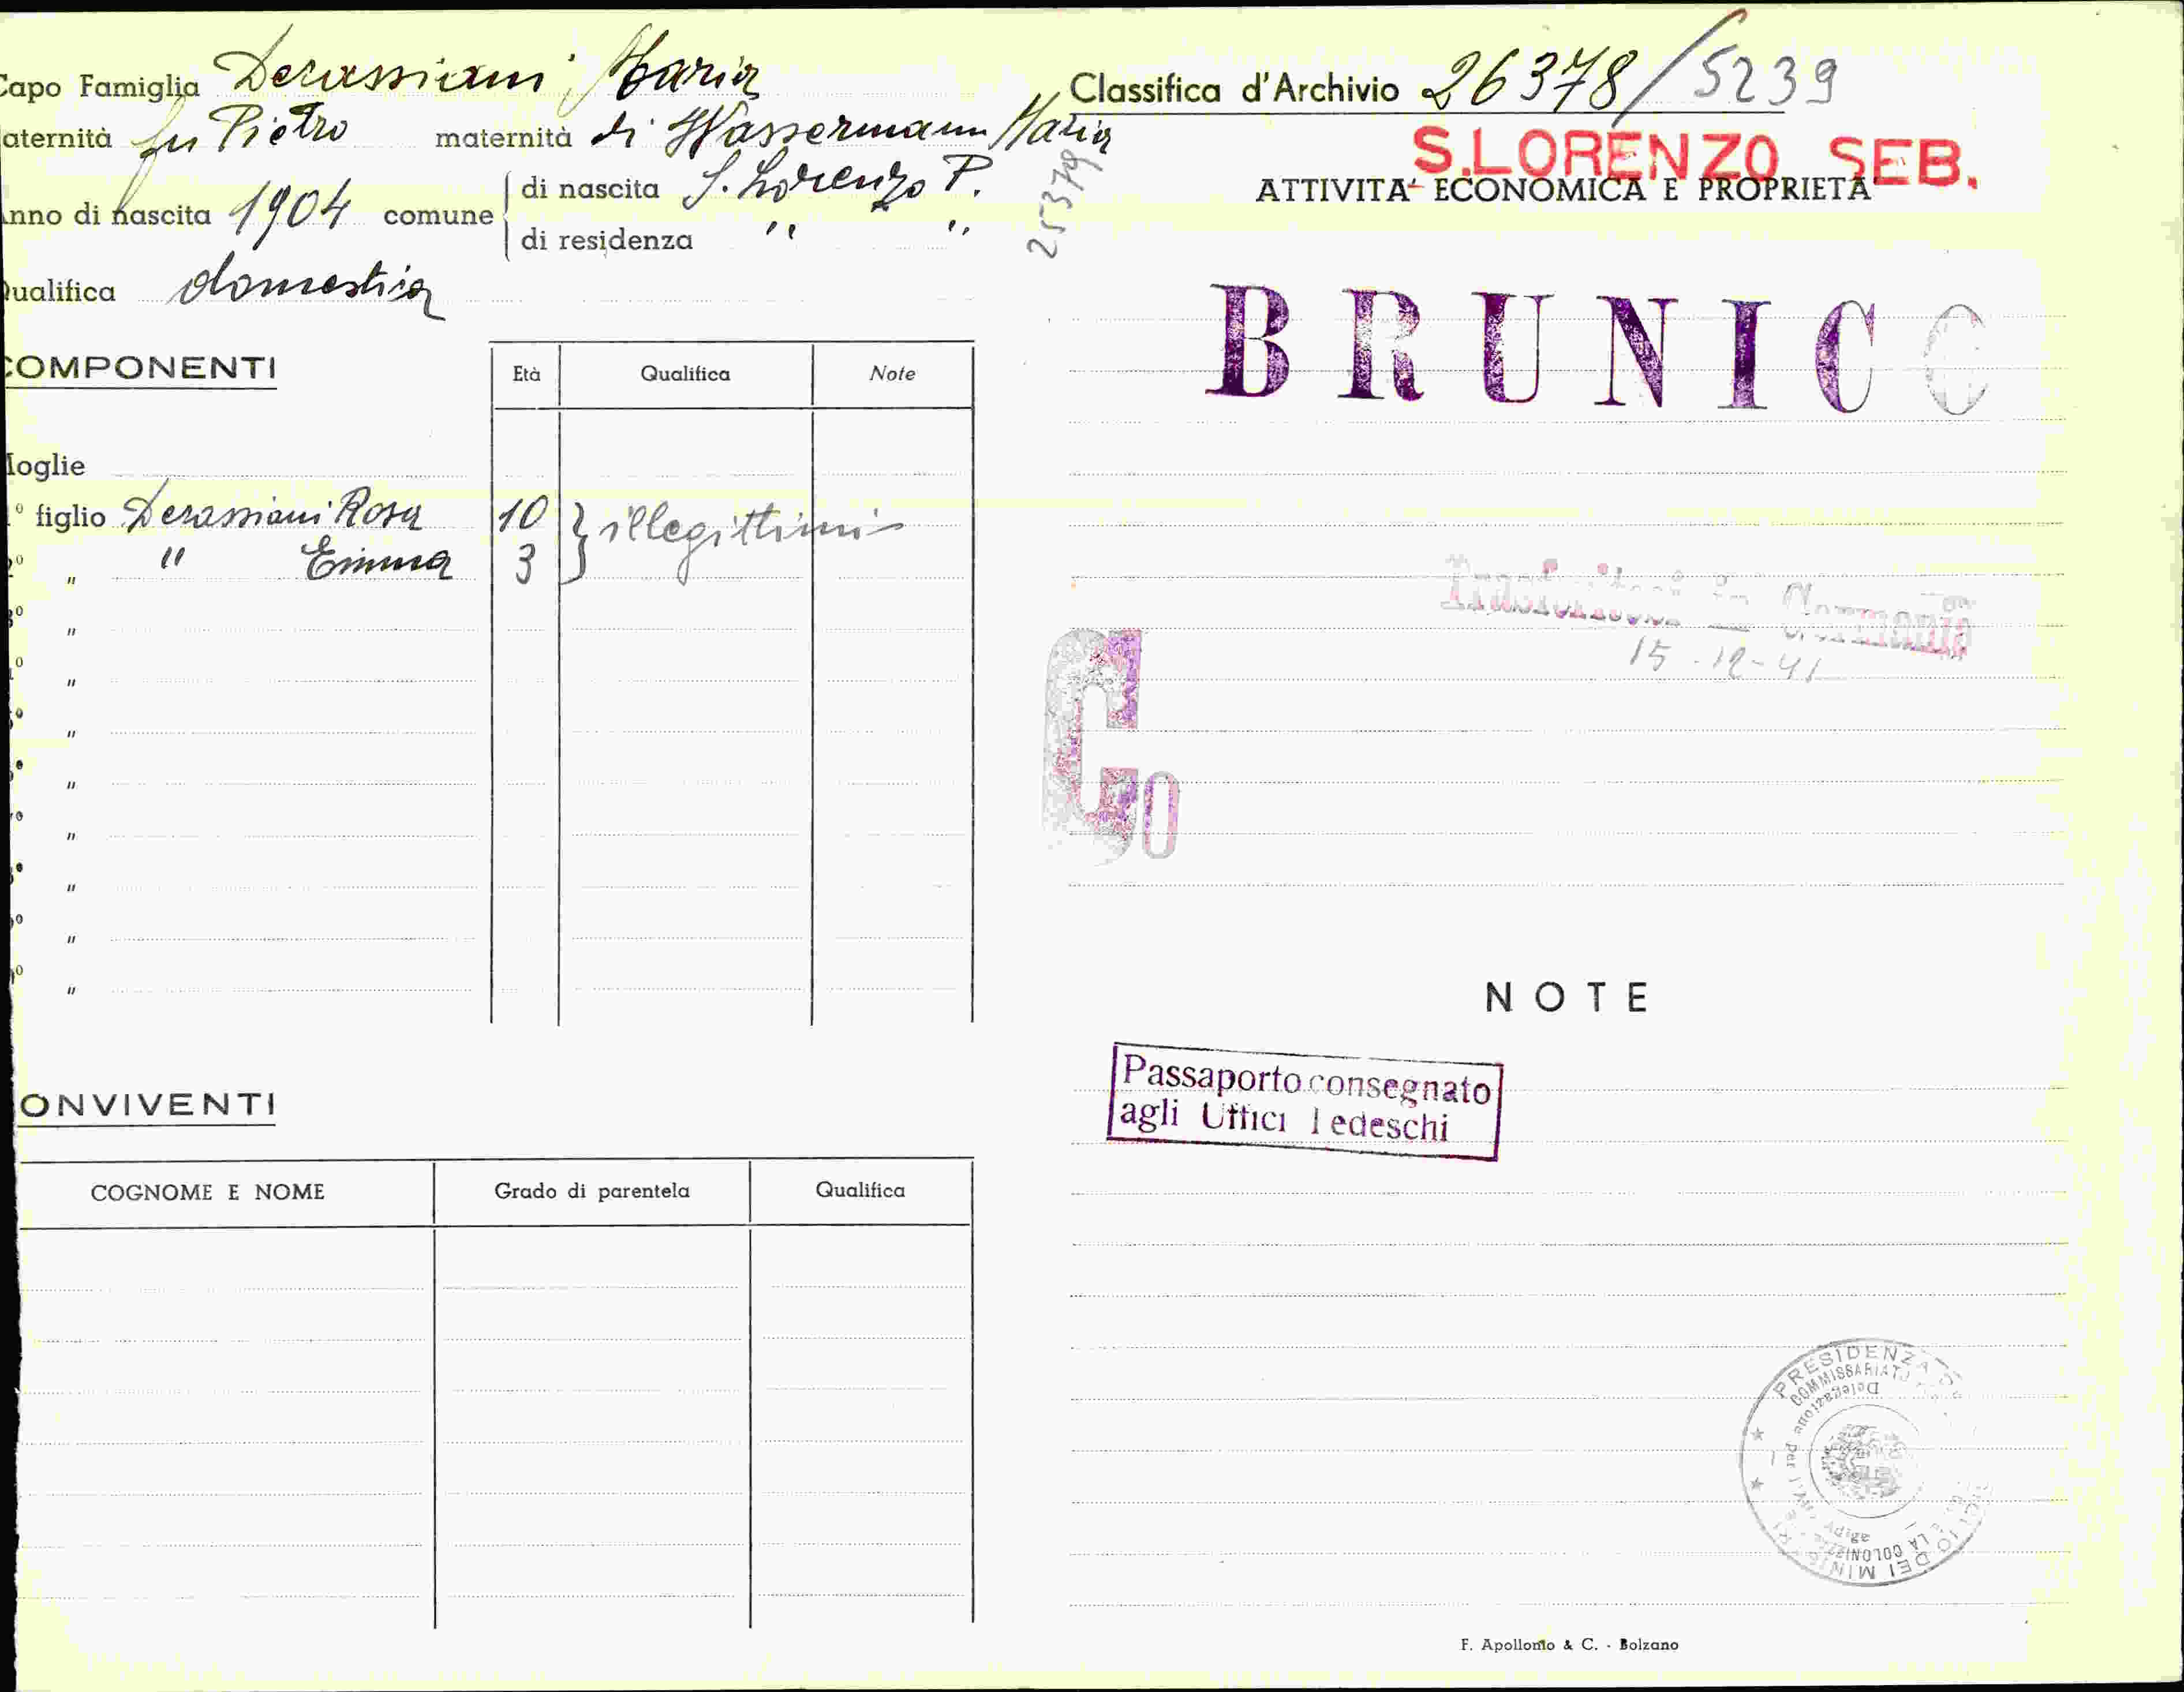 Capo Famiglia Derassiani Maria
aternità fu Pietro maternità di Wassermann Maria
nno di nascita 1904 comune di nascita S. Lorenzo P.
di residenza " "
ualifica domestica
COMPONENTI
Età Qualifica Note
oglie
° figlio Derassiani Rosa 10 } illegittimi
° " " Emma 3
° "
° "
° "
° "
° "
° "
° "
° "
ONVIVENTI
COGNOME E NOME Grado di parentela Qualifica
Classifica d'Archivio 26378/5239
25379
S.LORENZO SEB.
ATTIVITA' ECONOMICA E PROPRIETA'
BRUNICO
Trasferitosi in Germania
15-12-41
Go
NOTE
Passaporto consegnato
agli Uffici Tedeschi
PRESIDENZA DEL CONSIGLIO DEI MINISTRI
COMMISSARIATO LA COLONIZZ
Delegazione per l'Alto Adige
F. Apollonio & C. - Bolzano